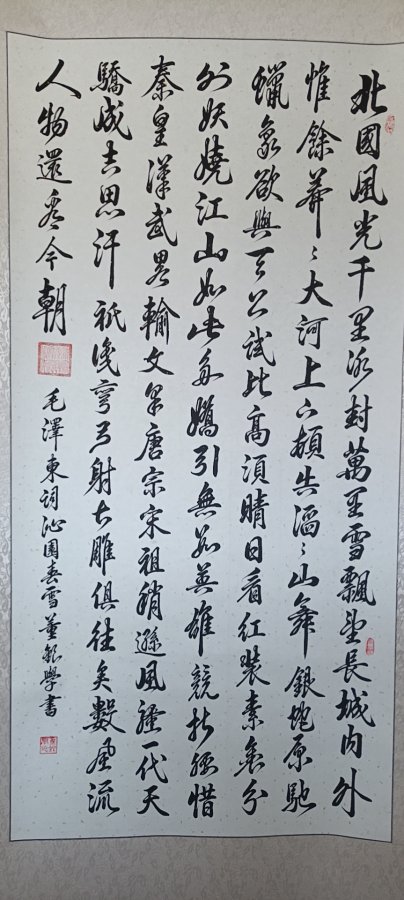 北國風光千里冰封萬里雪飄望長城内外
惟餘莽〻大河上下頓失滔〻山舞銀蛇原馳
蠟象欲與天公試比高須晴日看紅裝素裹分
外妖嬈江山如此多嬌引無數英雄競折腰惜
秦皇漢武畧輸文采唐宗宋祖稍遜風騷一代天
驕成吉思汗祇識彎弓射大雕俱往矣數風流
人物還看今朝
毛澤東詞沁園春雪董學書